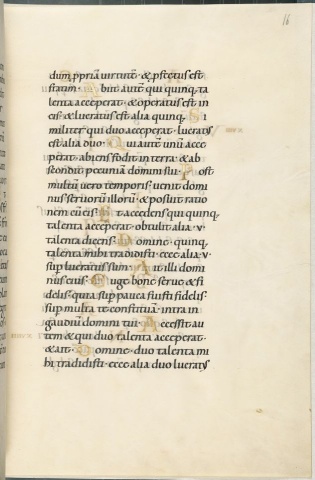 16
dum ppriā uirtutē · & pfectus est
statim · bιt autē qui quinq, ta
lenta acceperat · & operatus est in
eis · & lucratus est alia quinq, · Si
militer qui duo acceperat · lucratus
est alia duo · Qui autē unū acce
perat · abiens fodit in terra · & ab
scondit pecuniā domini sui · Post
multū uero temporis · uenit domi
nus seruorū illorū · & posuit ratio
nem cū eis · Et accedens qui quinq,
talenta acceperat · obtulit alia · v ·
talenta dicens · Domine · quinq,
talenta mihi tradidisti · ecce alia · v ·
sup lucratus sum · Ait illi domi
nus eius · Euge bone serue & fi
delis · quia sup pauca fuisti fidelis ·
sup multa te constituā · intra in
gaudiū domini tui · Accessit au
tem & qui duo talenta acceperat ·
& ait · Domine · duo talenta mi
hi tradidisti · ecce alia duo lucratus